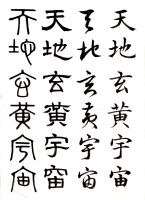 天地玄黃宇宙
天地玄黃宇宙
天地玄黃宇宙
天地玄黃宇宙